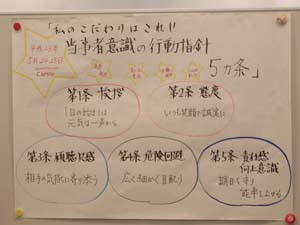 「私のこだわりはこれ!!
当事者意識の行動指針
5ヵ条」
第1条 挨拶
1日の始まりは
元気な一声から
第2条 態度
いつも笑顔で誠実に
第3条 傾聴共感
相手の気持に寄り添う
第4条 危険回避
広く細かく目配り
第5条 責任感
向上意識
期日を守り
能率を上げる